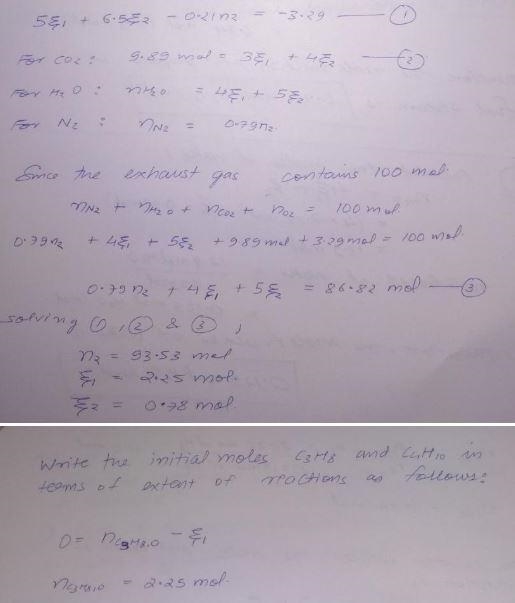 5ξ1 + 6.5ξ2 - 0.21n2 = -3.29 —— ①
For CO2 : 9.89 mol = 3ξ1 + 4ξ2 —— ②
For H2O : nH2O = 4ξ1 + 5ξ2
For N2 : nN2 = 0.79n2
Since the exhaust gas contains 100 mol.
nN2 + nH2O + nCO2 + nO2 = 100 mol.
0.79n2 + 4ξ1 + 5ξ2 + 9.89 mol + 3.29 mol = 100 mol.
0.79n2 + 4ξ1 + 5ξ2 = 86.82 mol —— ③
solving ①, ② & ③,
n2 = 93.53 mol
ξ1 = 2.25 mol.
ξ2 = 0.78 mol.
Write the initial moles C3H8 and C4H10 in
terms of extent of reactions as follows:
0 = nC3H8,0 - ξ1
nC3H8,0 = 2.25 mol.